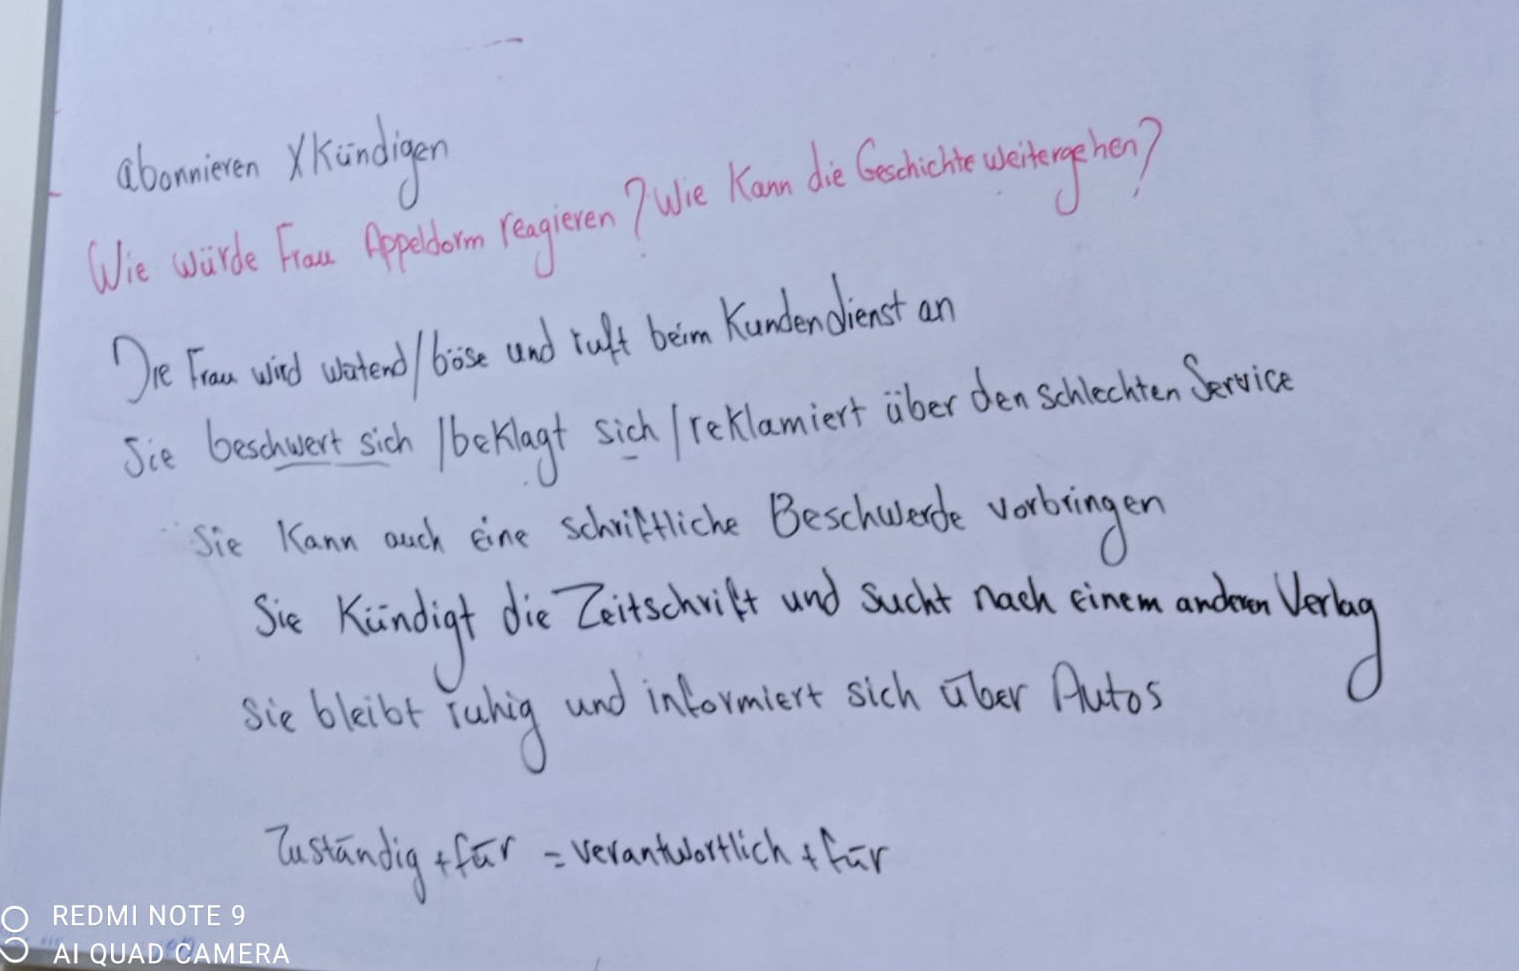 abonnieren X Kündigen
Wie würde Frau Appeldorm reagieren? Wie Kann die Geschichte weitergehen?
Die Frau wird wütend/böse und ruft beim Kundendienst an
Sie beschwert sich /beklagt sich /reklamiert über den schlechten Service
Sie Kann auch eine schriftliche Beschwerde vorbringen
Sie Kündigt die Zeitschrift und sucht nach einem anderen Verlag
Sie bleibt ruhig und informiert sich über Autos
Zuständig + für = verantwortlich + für
REDMI NOTE 9
AI QUAD CAMERA